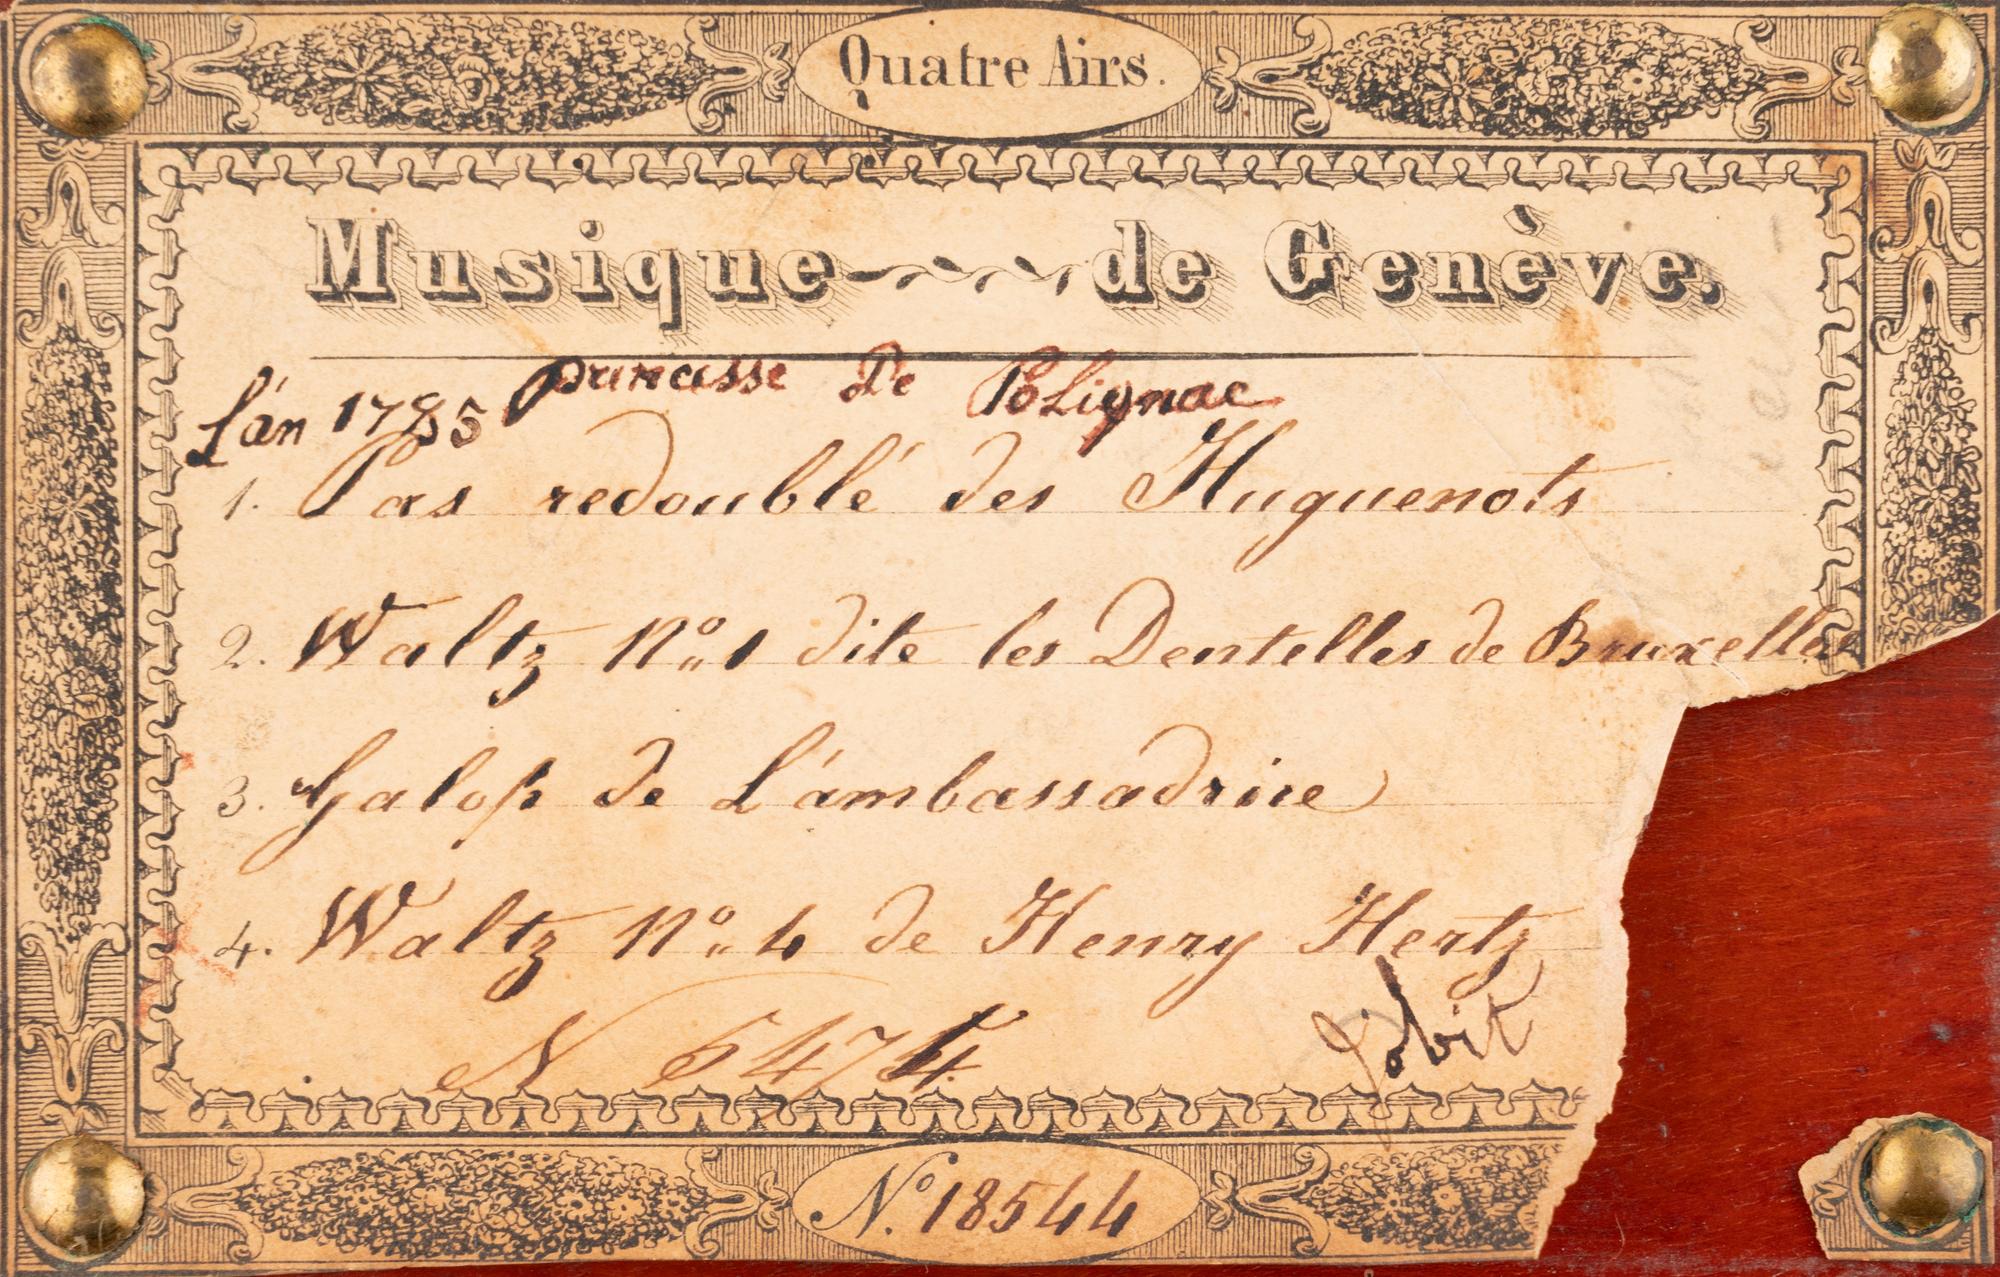 Quatre Airs.
Musique de Genève.
L'an 1785 princesse De Polignac
1. Pas redoublé des Huguenots
2. Waltz No. 1 dite les Dentelles de Bruxelles
3. Galop de L'ambassadrice
4. Waltz No. 4 de Henry Hertz
N 5474
Jobit
No. 18544